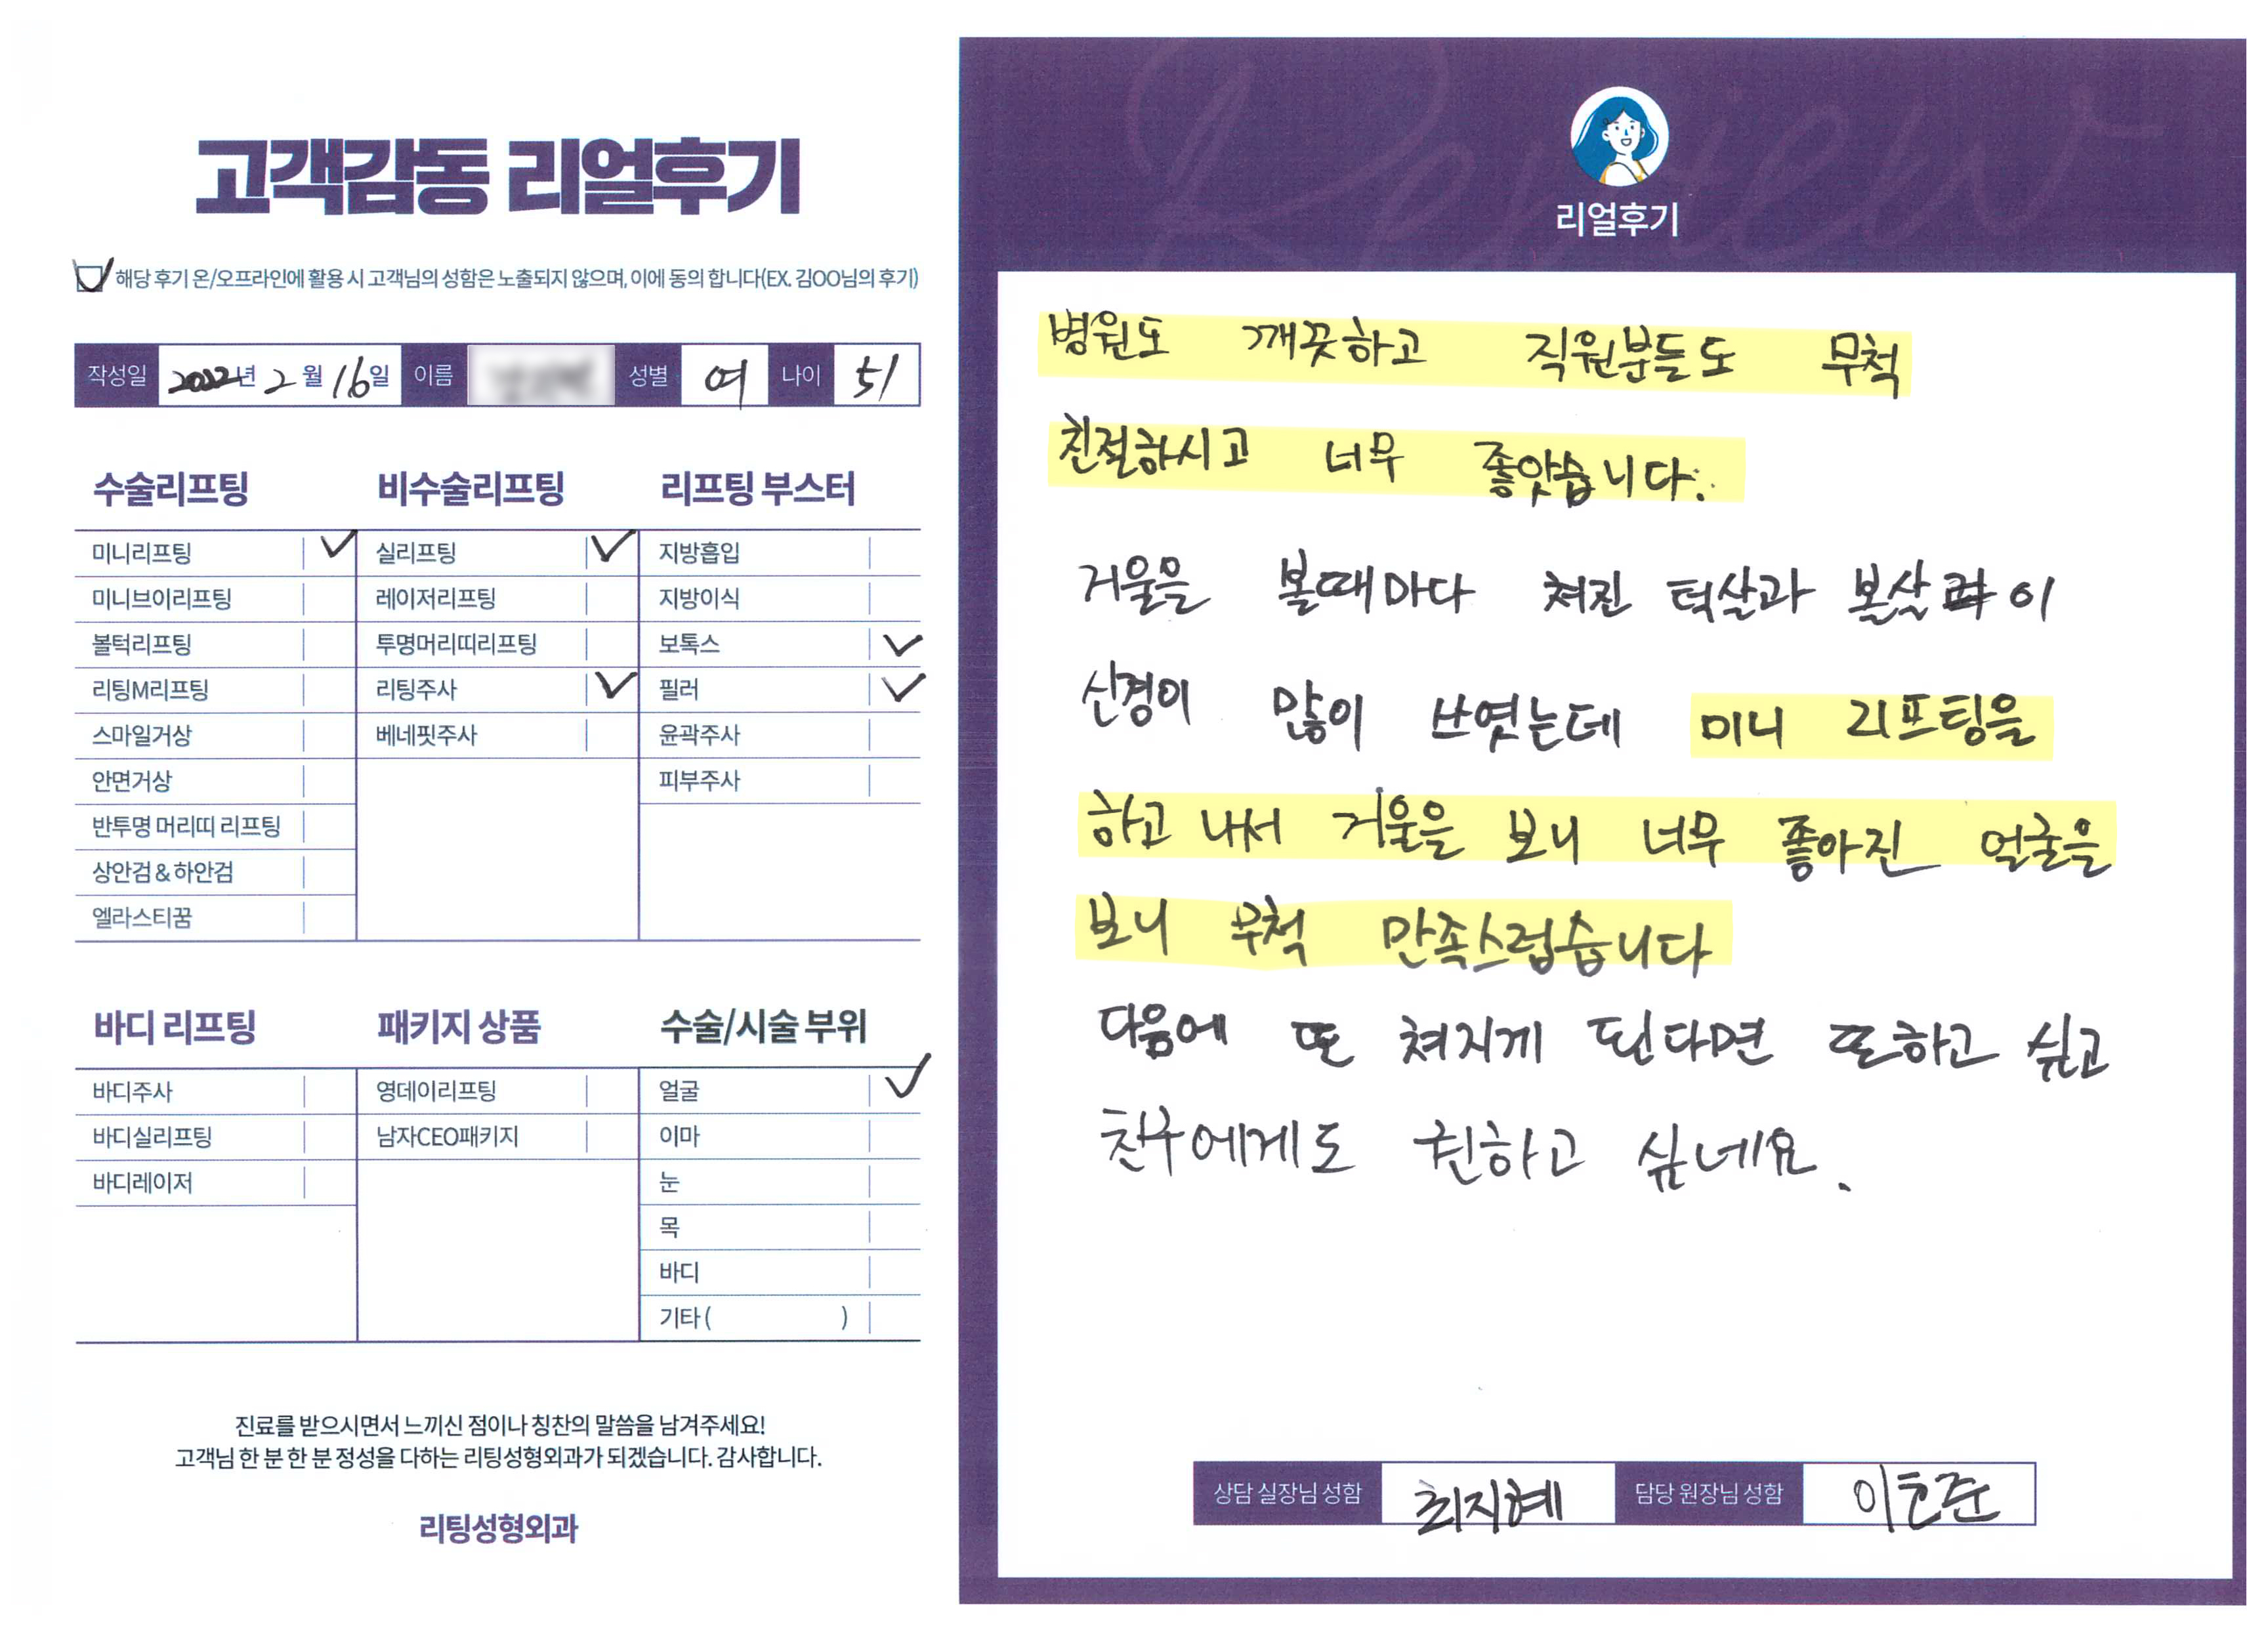 고객감동 리얼후기
해당 후기 온/오프라인에 활용 시 고객님의 성함은 노출되지 않으며, 이에 동의 합니다(EX. 김OO님의 후기)
작성일 2022년 2월 16일 이름 성별 여 나이 51
수술리프팅 비수술리프팅 리프팅 부스터
미니리프팅 실리프팅 지방흡입
미니브이리프팅 레이저리프팅 지방이식
볼턱리프팅 투명머리띠리프팅 보톡스
리팅M리프팅 리팅주사 필러
스마일거상 베네핏주사 윤곽주사
안면거상 피부주사
반투명 머리띠 리프팅
상안검 & 하안검
엘라스티꿈
바디 리프팅 패키지 상품 수술/시술 부위
바디주사 영데이리프팅 얼굴
바디실리프팅 남자CEO패키지 이마
바디레이저 눈
목
바디
기타 ( )
진료를 받으시면서 느끼신 점이나 칭찬의 말씀을 남겨주세요!
고객님 한 분 한 분 정성을 다하는 리팅성형외과가 되겠습니다. 감사합니다.
리팅성형외과
Review
리얼후기
병원도 깨끗하고 직원분들도 무척
친절하시고 너무 좋앗습니다.
거울을 볼때마다 쳐진 턱살과 볼살 이
신경이 많이 쓰엿는데 미니 리프팅을
하고 나서 거울을 보니 너무 좋아진 얼굴을
보니 무척 만족스럽습니다
다음에 또 쳐지게 된다면 또하고 싶고
친구에게도 권하고 싶네요.
상담 실장님 성함 최지혜 담당 원장님 성함 이호준